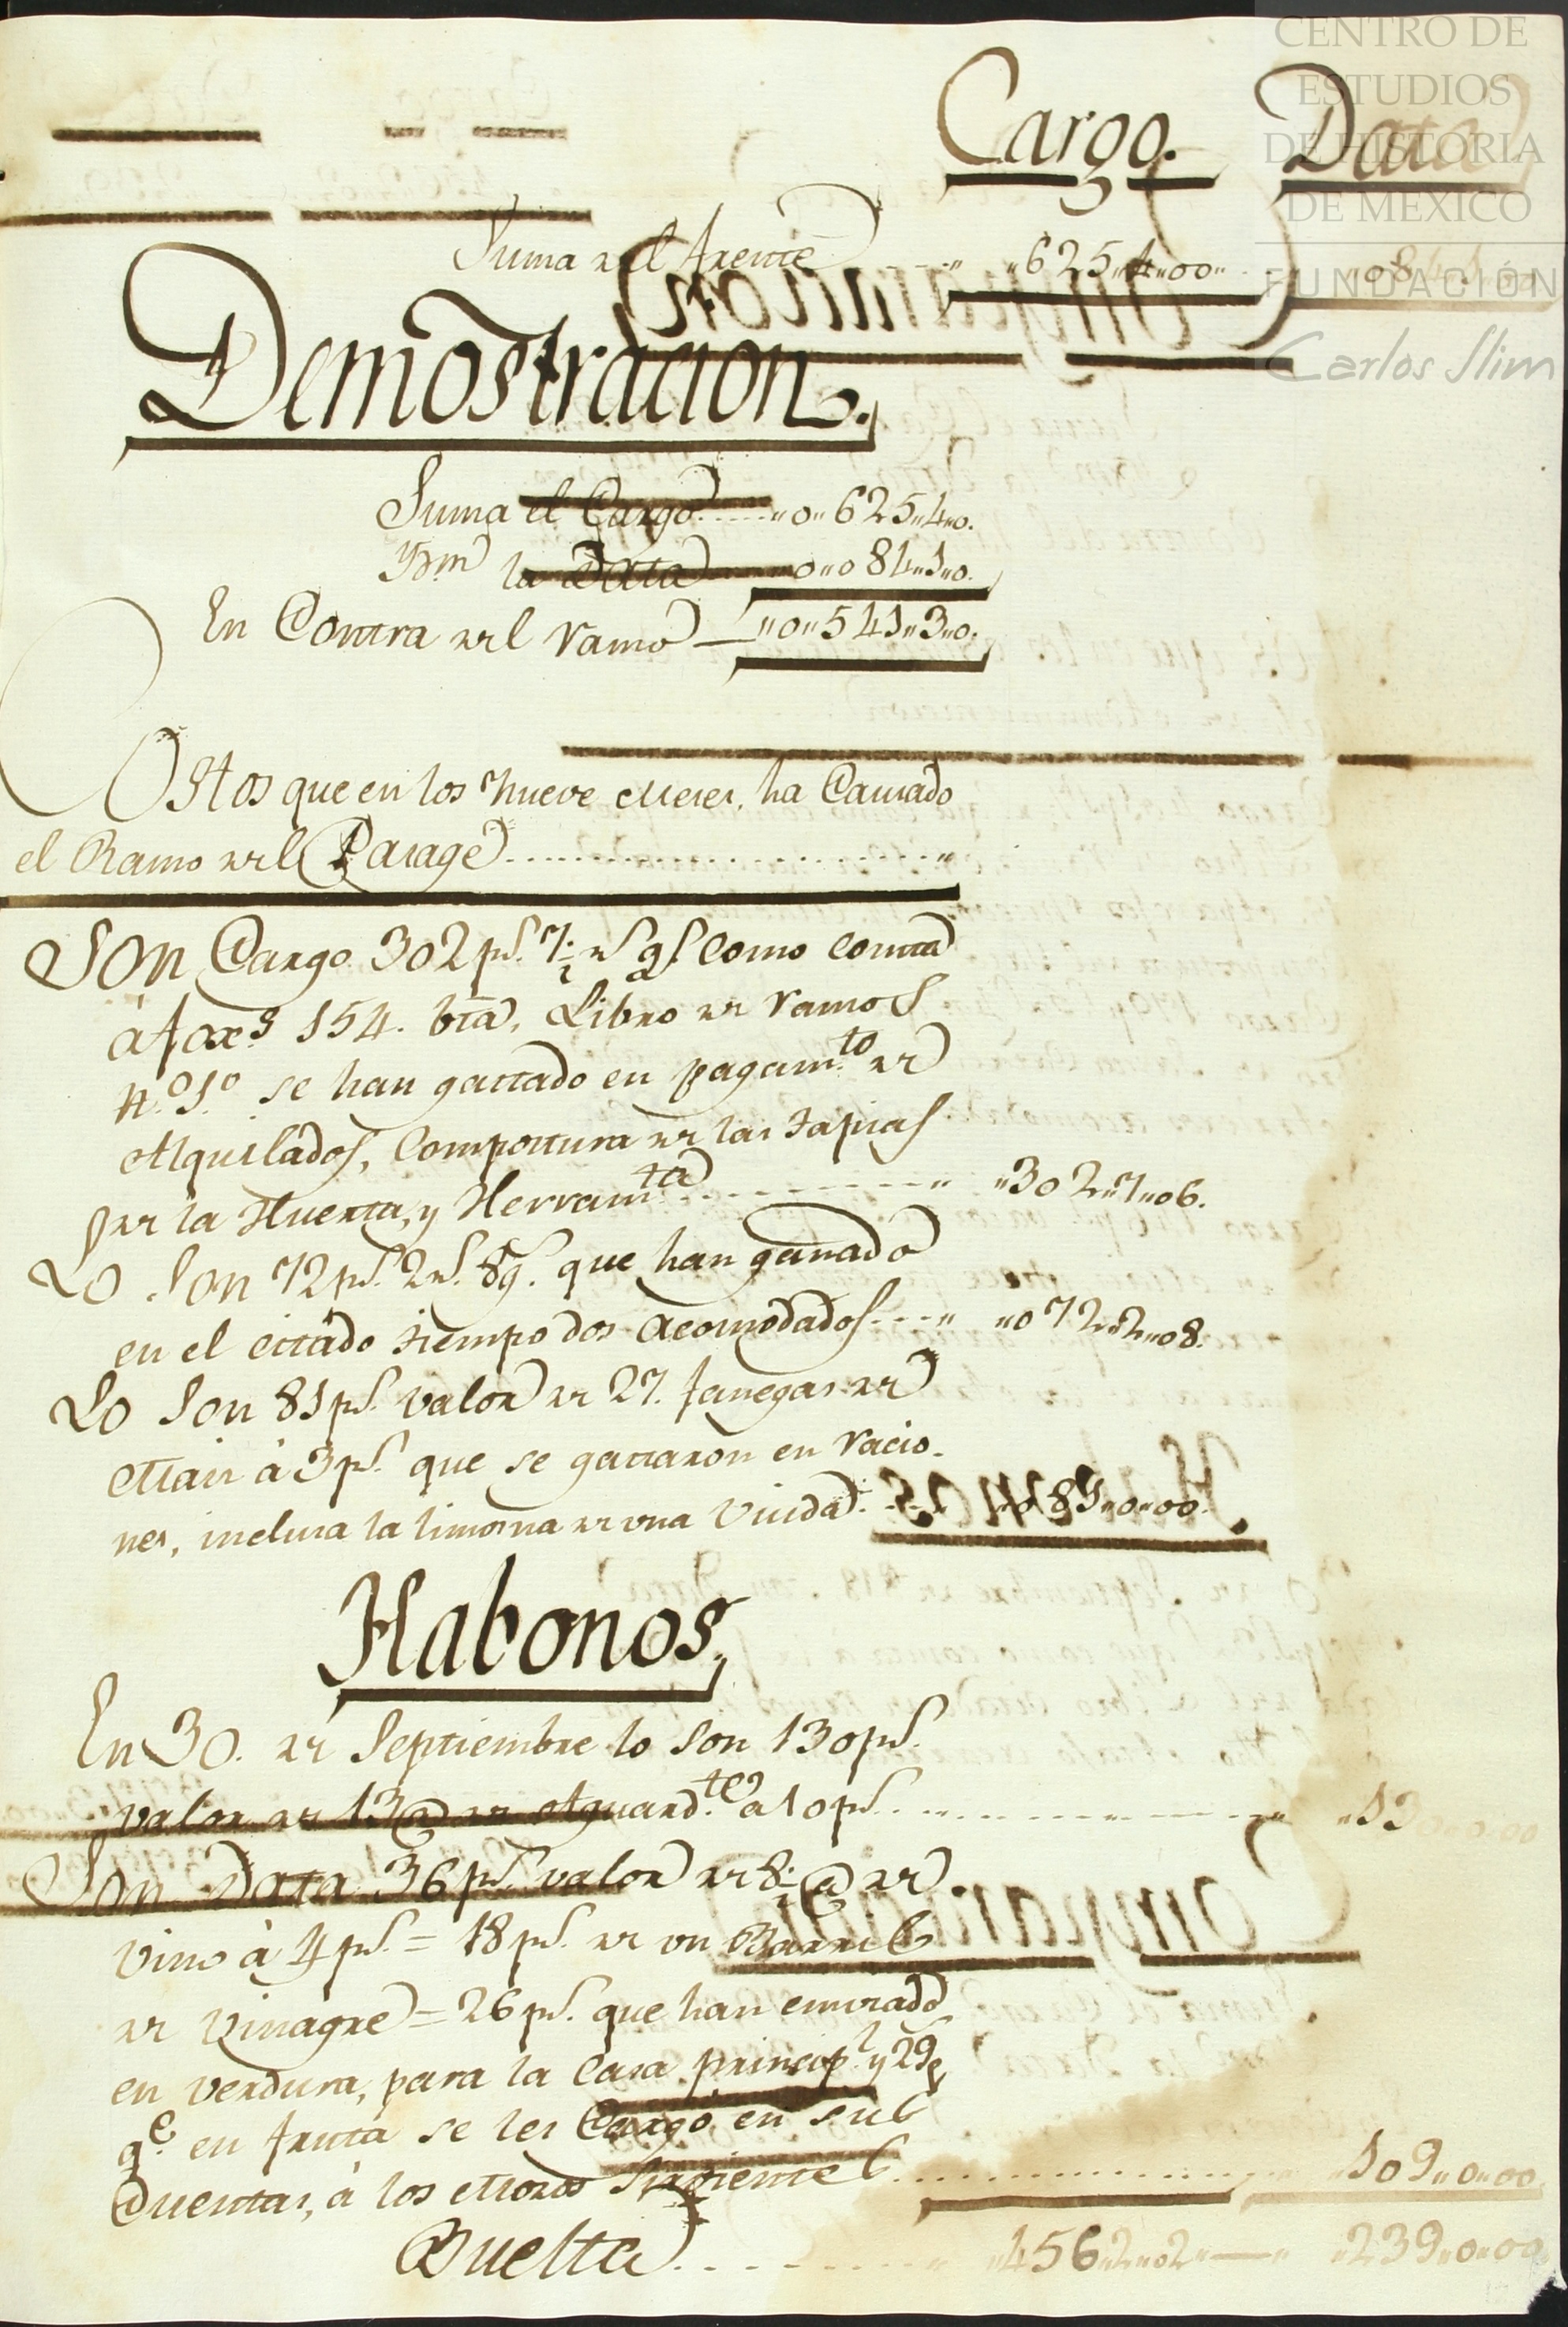 CENTRO DE
ESTUDIOS
DE HISTORIA
DE MEXICO
FUNDACIÓN
Carlos Slim
Cargo. Data
Suma del frente 625,,4,,00,, 084,,1,,00
Demostracion.
Suma el Cargo ,,0,,625,,4,,0.
Ydm la Data 0,,084,,1,,0.
En Contra del ramo ,,0,,541,,3,,0.
Costos que en los Nueve Meses, ha Causado
el Ramo del Parage
Son Cargo 302 ps. 7½ rs qe. como consta
à foxs 154. bta, Libro de ramos
n.º 1.º se han gastado en pagam.to de
Alquilados, Compostura de las tapias
de la Huerta, y Herram.ta ,,302,,7,,06.
Lo Son 72 ps. 2 rs. 8 gs. que han ganado
en el citado tiempo dos Acomodados ,,072,,2,,08.
Lo Son 81 ps. valor de 27. fanegas de
Mais à 3 ps. que se gastaron en racio-
nes, inclusa la limosna de una Viuda ,,081,,0,,00.
Habonos,
En 30. de Septiembre lo son 130 ps.
valor de 13 @ de Aguard.te a 10 ps. ,,130,,0,,00
Son Data 36 ps. valor de 8½ @ de
Vino à 4 ps. = 18 ps. de un Barril
de Vinagre = 26 ps. que han enviado
en verdura, para la Casa princip.l y 29 ps
q.e en fruta se les Cargó en sus
Cuentas, à los Mozos Sirvientes ,,109,,0,,00
Buelta ,,456,,2,,02,, ,,239,,0,,00